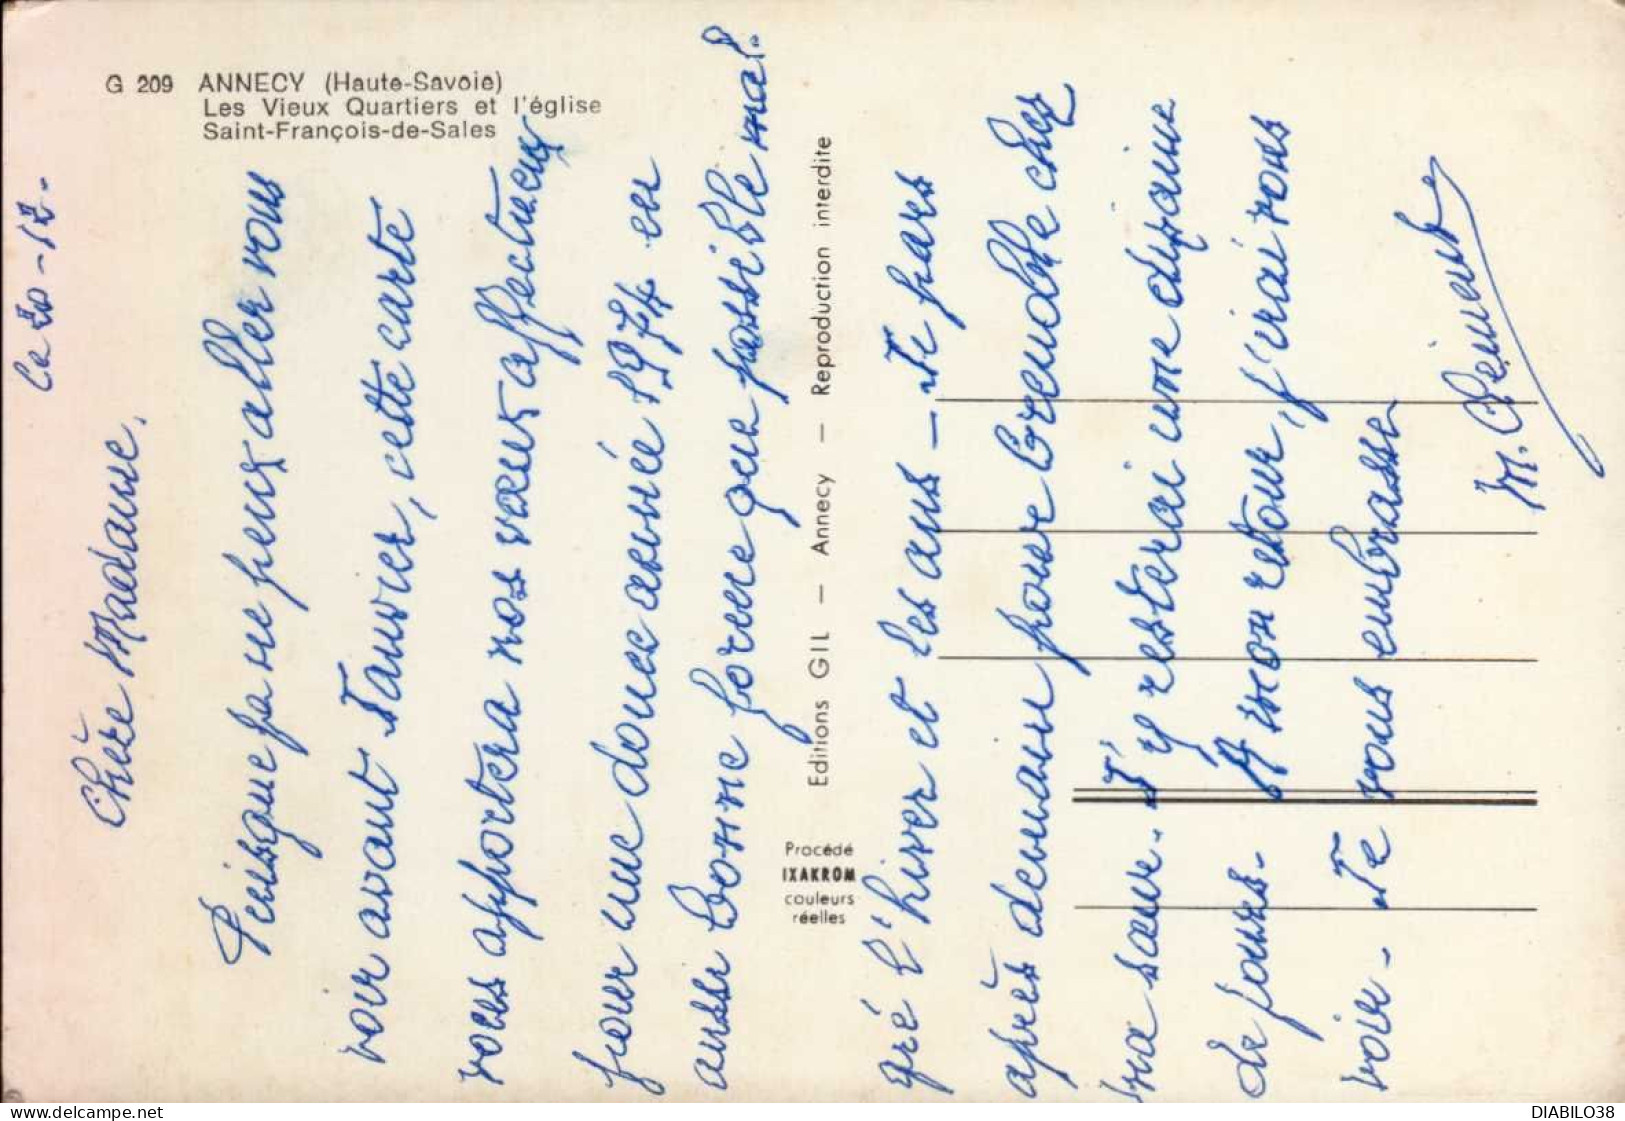 G 209 ANNECY (Haute-Savoie)
Les Vieux Quartiers et l'église
Saint-François-de-Sales
Le 20-12-
Chère Madame,
Puisque je ne peux aller vous
voir avant Janvier, cette carte
vous apportera nos vœux affectueux
pour une douce année 1974 en
aussi bonne forme que possible mal-
gré l'hiver et les ans - Je pars
après demain pour Grenoble chez
ma sœur. J'y resterai une dizaine
de jours - A mon retour, j'irai vous
voir - Je vous embrasse
Editions GIL — Annecy — Reproduction interdite
Procédé
IXAKROM
couleurs
réelles
delcampe.net
DIABILO38